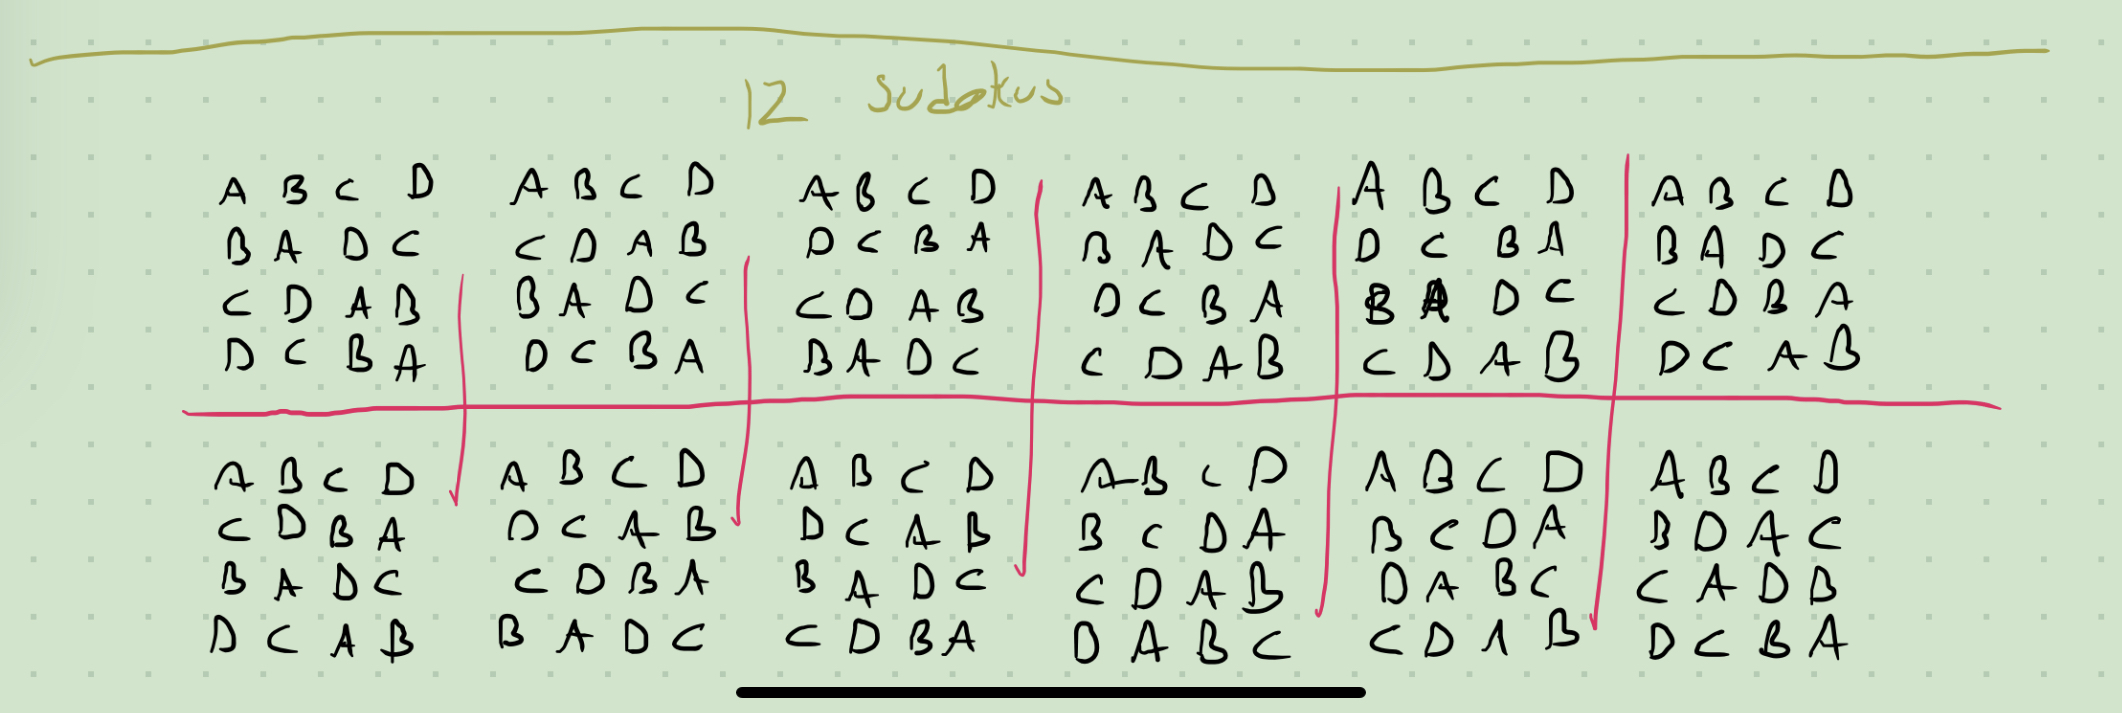 12 sudokus
A B C D
B A D C
C D A B
D C B A
A B C D
C D A B
B A D C
D C B A
A B C D
D C B A
C D A B
B A D C
A B C D
B A D C
D C B A
C D A B
A B C D
D C B A
B A D C
C D A B
A B C D
B A D C
C D B A
D C A B
A B C D
C D B A
B A D C
D C A B
A B C D
D C A B
C D B A
B A D C
A B C D
D C A B
B A D C
C D B A
A B C D
B C D A
C D A B
D A B C
A B C D
B C D A
D A B C
C D A B
A B C D
B D A C
C A D B
D C B A